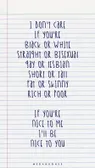 I DON'T CARE
IF YOU'RE
BLACK OR WHITE
STRAIGHT OR BISEXUAL
GAY OR LESBIAN
SHORT OR TALL
FAT OR SKINNY
RICH OR POOR
IF YOU'RE
NICE TO ME
I'LL BE
NICE TO YOU